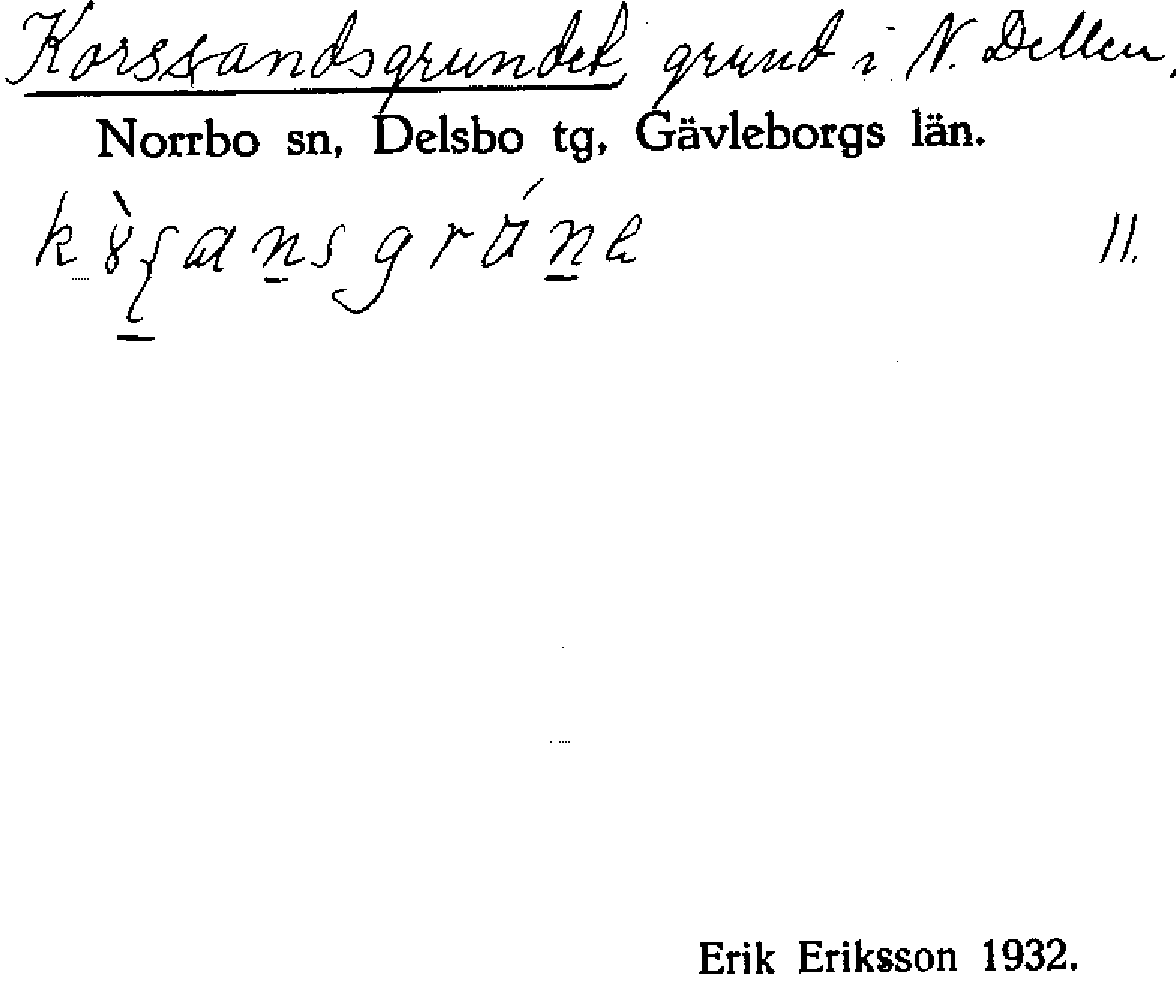 Korssandsgrundet, grund i N. Dellen,
Norrbo sn, Delsbo tg, Gävleborgs län.
11.
Erik Eriksson 1932.